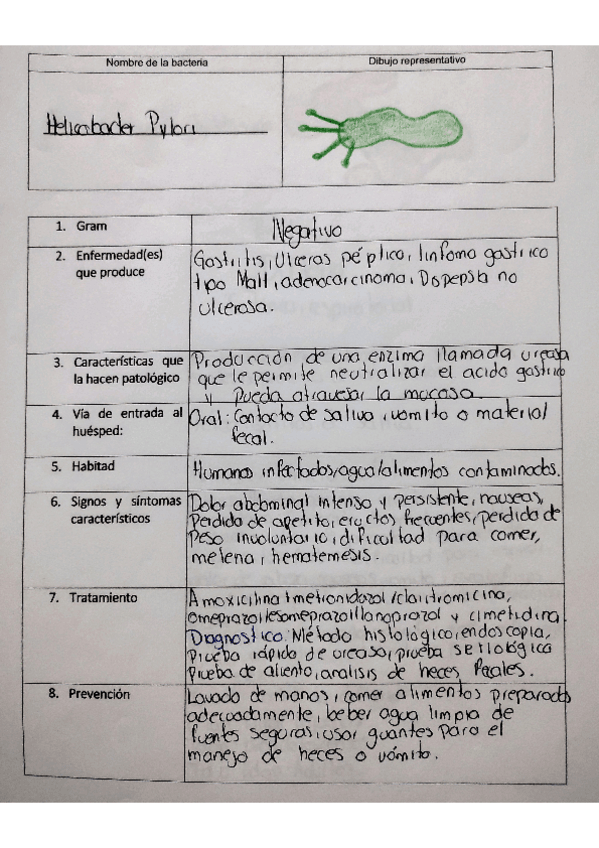 Nombre de la bacteria
Dibujo representativo
Helicobacter Pylori
1. Gram
Negativo
2. Enfermedad(es)
que produce
Gastritis, Ulceras péptico, linfoma gastrico
tipo Malt, adenocarcinoma, Dispepsia no
ulcerosa.
3. Características que
la hacen patológico
Producción de una enzima llamada ureasa
que le permite neutralizar el acido gastrico
y pueda atravesar la mucosa.
4. Vía de entrada al
huésped:
Oral: Contacto de saliva, vómito o material
fecal.
5. Habitad
Humanos infectados, agua/alimentos contaminados.
6. Signos y síntomas
característicos
Dolor abdominal intenso y persistente, nauseas,
Perdido de apetito, eructos frecuentes, perdido de
Peso involuntario, dificultad para comer,
melena, hematemesis.
7. Tratamiento
Amoxicilina + metronidazol / claritromicina,
omeprazol/esomeprazol/lanoprazol y cimetidina.
Diagnostico: Método histológico, endoscopia,
Prueba rápida de ureasa, prueba serológica
Prueba de aliento, analisis de heces fecales.
8. Prevención
Lavado de manos, comer alimentos preparados
adecuadamente, beber agua limpia de
fuentes seguras, usar guantes para el
manejo de heces o vómito.